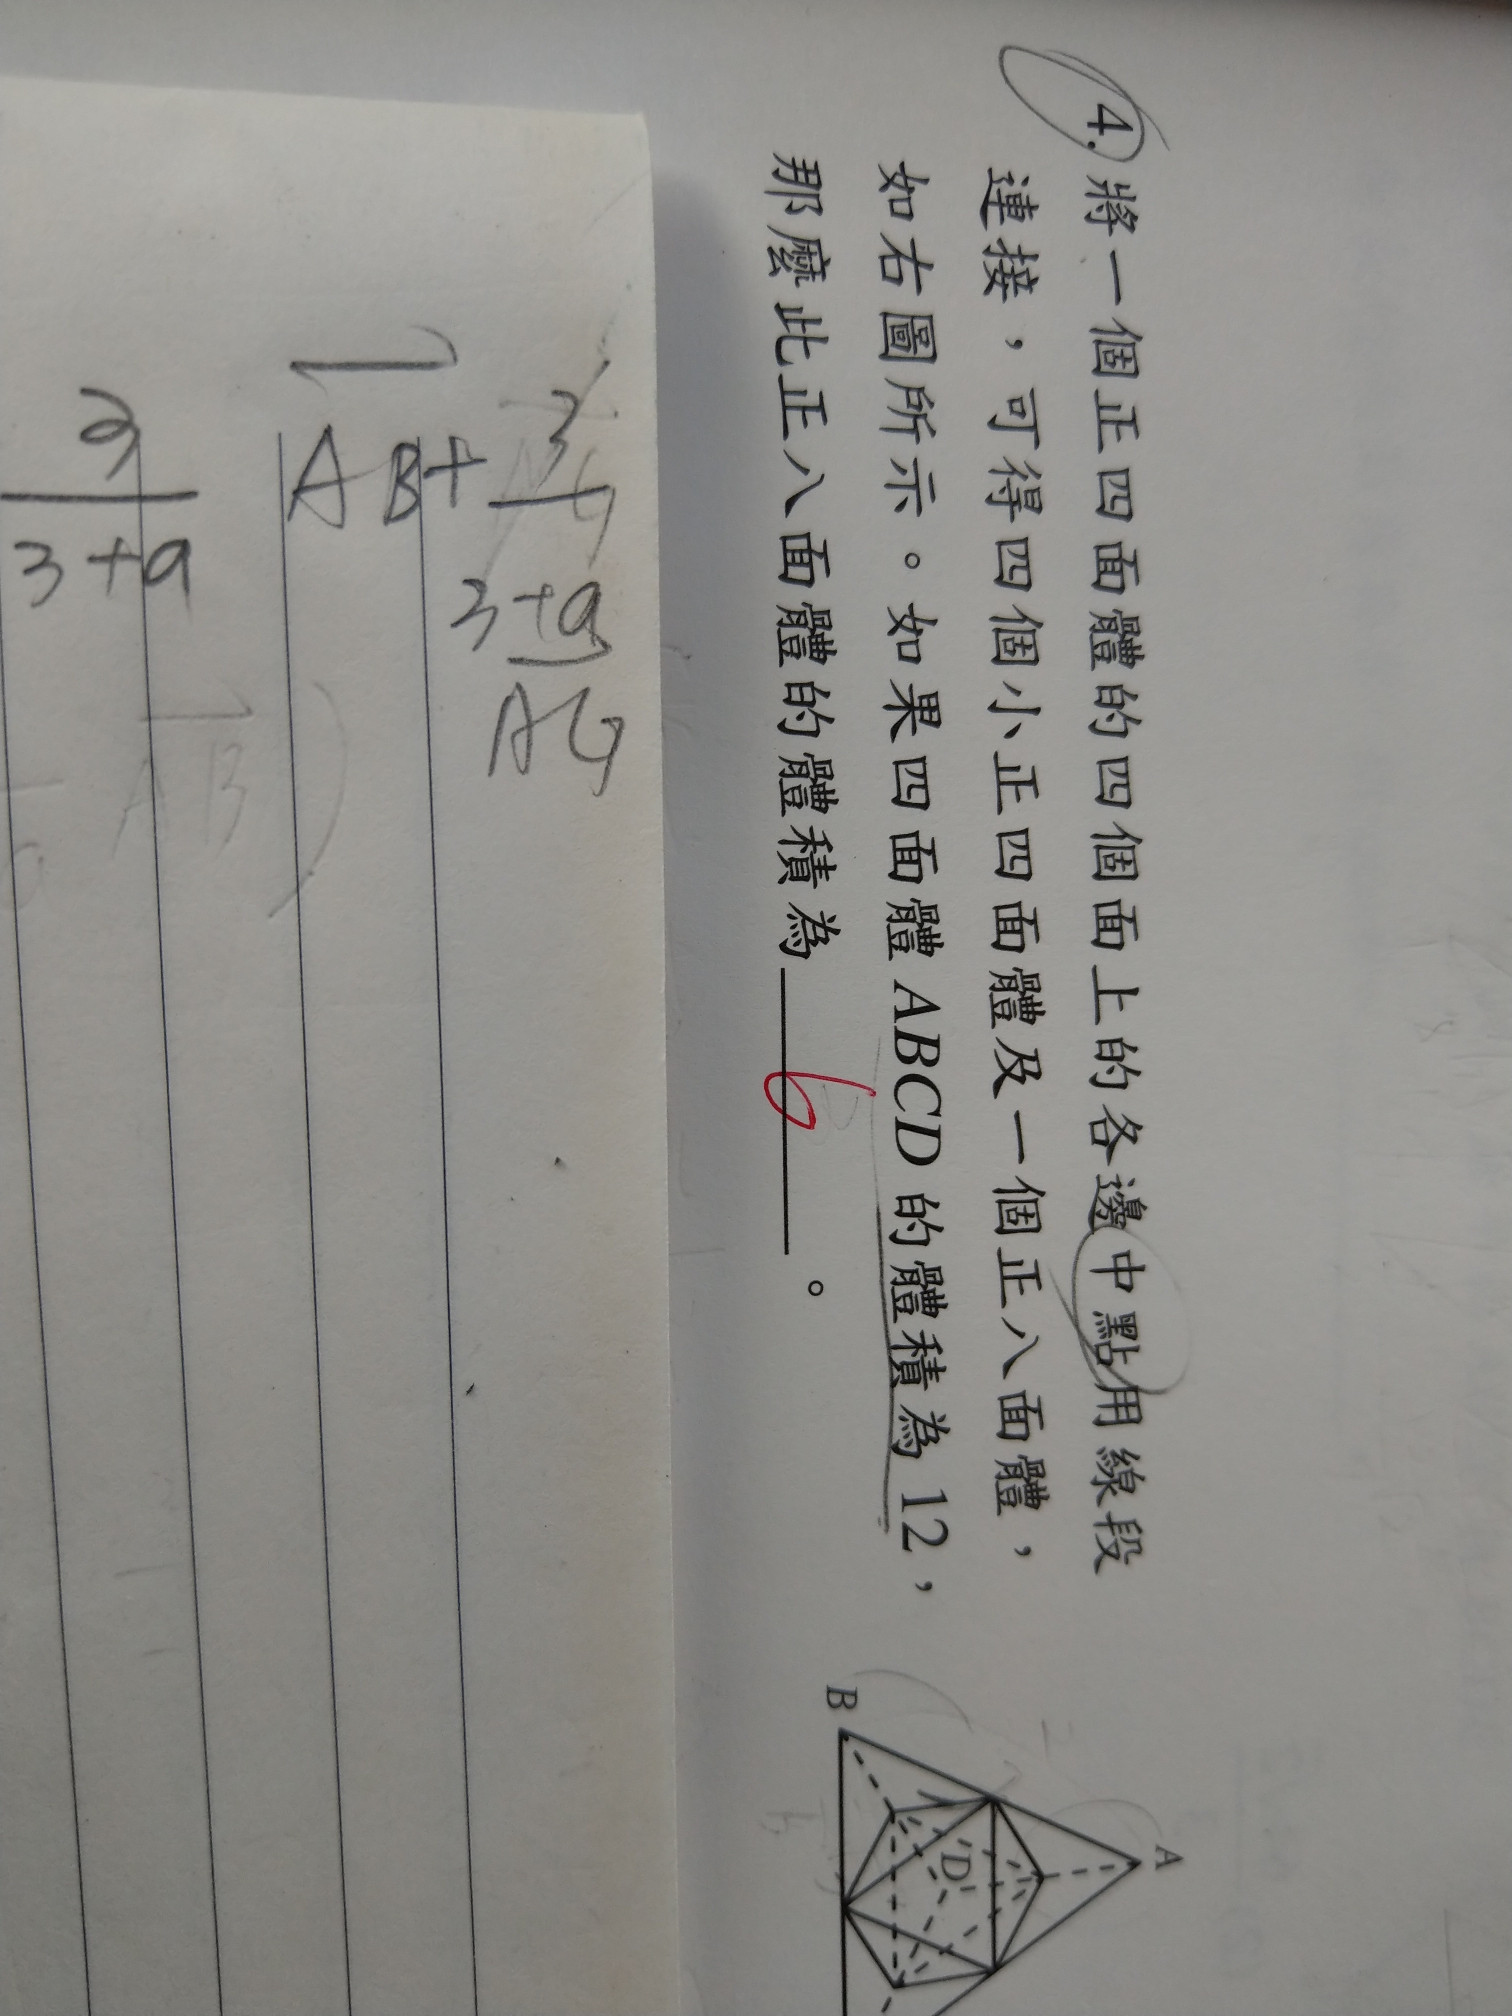 4. 將一個正四面體的四個面上的各邊中點用線段
連接，可得四個小正四面體及一個正八面體，
如右圖所示。如果四面體 ABCD 的體積為 12，
那麼此正八面體的體積為 6 。
A
B
D
AB + 3/(3+a) AG
3/(3+a)
AB